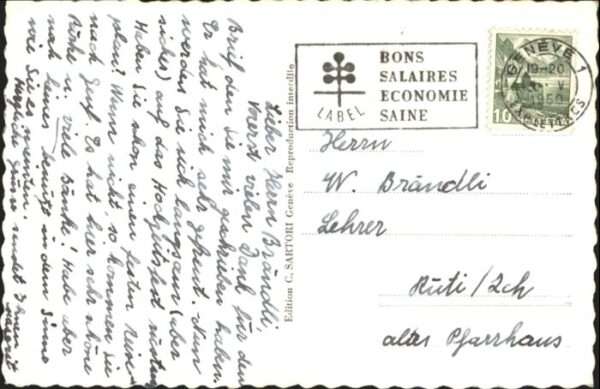 Lieber Herr Brändli,
Merci vielen Dank für den
Brief den Sie mir geschrieben haben.
Er hat mich sehr gefreut. Nun
werden Sie sich langsam (aber
sicher) auf das Hochzeitsfest
Haben Sie schon einen festen Reise-
plan? Wenn nicht, so kommen Sie
nach Genf. Es hat hier sehr schöne
Ruhe u. viele Bänke! Habe aber
noch keines in dem Sinne
wie Sie es
Herzliche Grüsse sendet Ihnen
Edition C. SARTORI Genève Reproduction interdite
LABEL
BONS
SALAIRES
ECONOMIE
SAINE
GENÈVE 1
19-20
V
1950
10
Herrn
W. Brändli
Lehrer
Rüti/Zch
altes Pfarrhaus